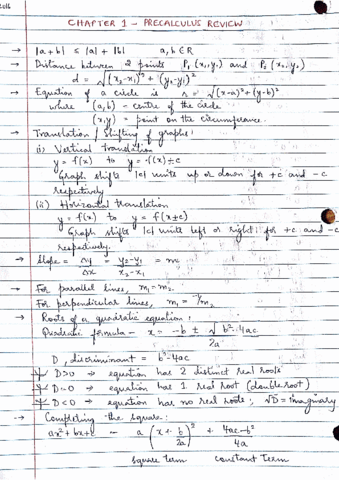 CHAPTER 1 - PRECALCULUS REVIEW
→ |a+b| ≤ |a| + |b| a, b ∈ R
→ Distance between 2 points P₁(x₁, y₁) and P₂(x₂, y₂)
d = √(x₂-x₁)² + (y₂-y₁)²
→ Equation of a circle is r = √(x-a)² + (y-b)²
where (a,b) - centre of the circle
(x,y) = point on the circumference.
→ Translation / Shifting of graphs:
(i) Vertical Translation
y = f(x) to y = f(x) ± c
Graph shifts |c| units up or down for +c and -c
respectively
(ii) Horizontal translation
y = f(x) to y = f(x±c)
Graph shifts |c| units left or right for +c and -c
respectively.
→ Slope = Δy/Δx = y₂-y₁/x₂-x₁ = m
→ For parallel lines, m₁ = m₂.
For perpendicular lines, m₁ = -1/m₂
→ Roots of a quadratic equation:
Quadratic formula - x = -b ± √b²-4ac / 2a
D, discriminant = b²-4ac
D>0 ⇒ equation has 2 distinct real roots
D=0 ⇒ equation has 1 real root (double root)
D<0 ⇒ equation has no real roots, √D = imaginary
→ Completing the square:
ax²+bx+c = a(x + b/2a)² + 4ac-b²/4a
square term constant term